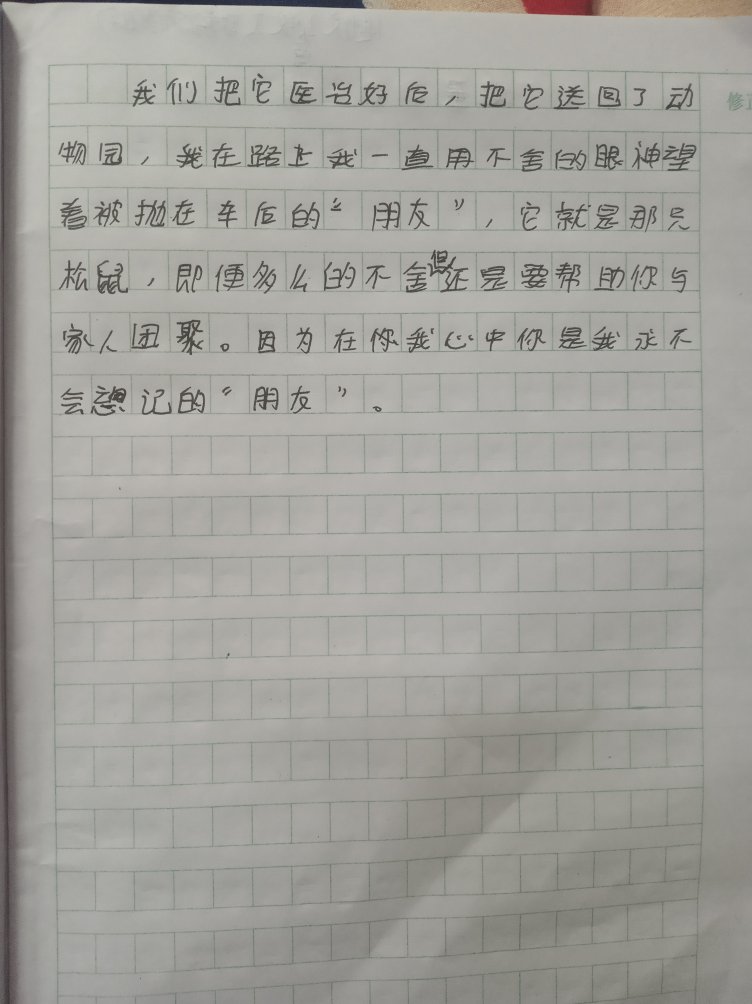 我们把它医治好后，把它送回了动
物园，我在路上我一直用不舍的眼神望
着被抛在车后的“朋友”，它就是那只
松鼠，即便多么的不舍但还是要帮助你与
家人团聚。因为在你我心中你是我永不
会想记的“朋友”。
修